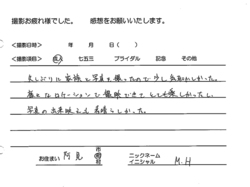 撮影お疲れ様でした。 感想をお願いいたします。
<撮影日時> 年 月 日( )
<撮影項目> 成人 七五三 ブライダル 記念 その他
久しぶりに家族で写真を撮ったので少し気恥ずかしかった。
色々なロケーションで撮影できて、とても楽しかったし、
写真の出来映えも素晴らしかった。
お住まい 阿見 市 町 村 ニックネーム イニシャル M.H